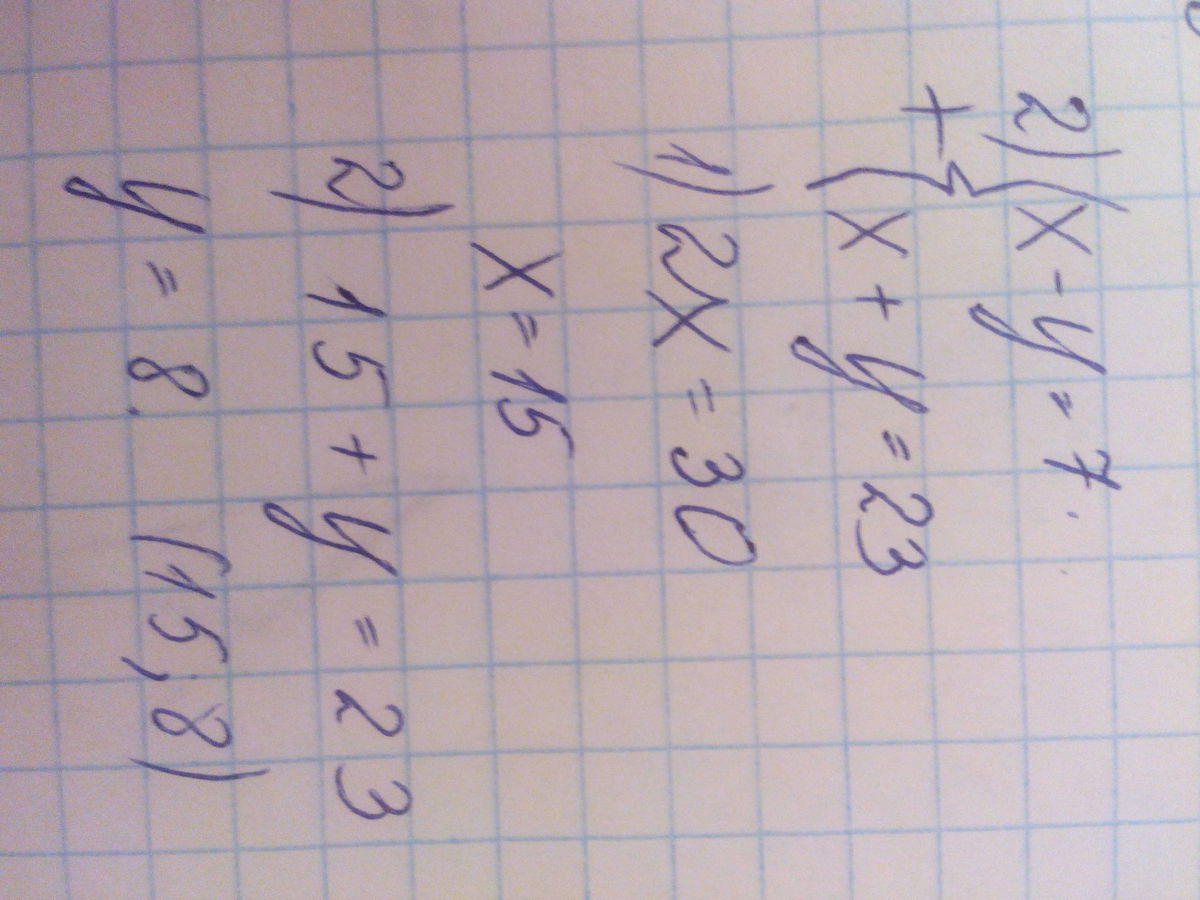 2) { x - y = 7.
+ { x + y = 23
1) 2x = 30
x = 15
2) 15 + y = 23
y = 8. (15; 8)